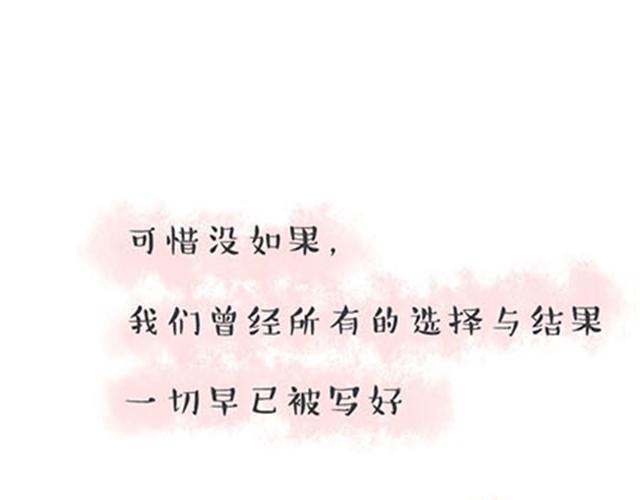 可惜没如果，
我们曾经所有的选择与结果
一切早已被写好